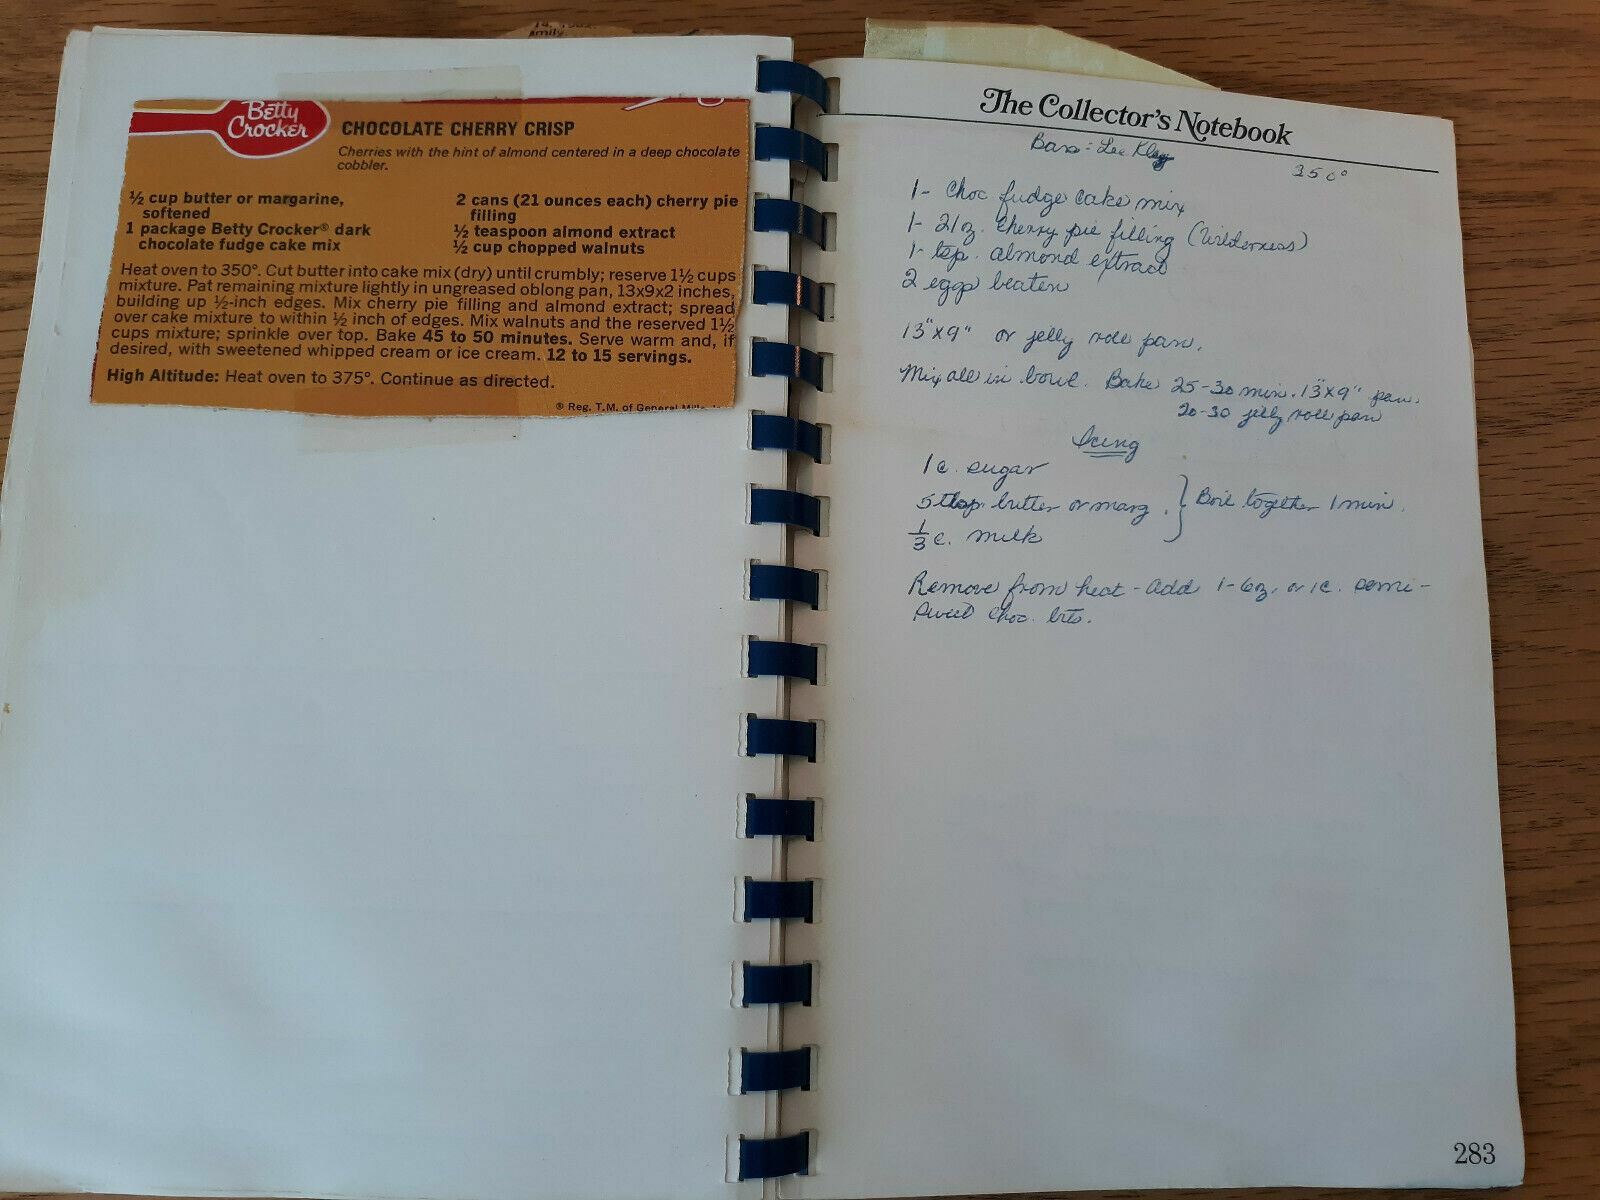 Betty
Crocker
CHOCOLATE CHERRY CRISP
Cherries with the hint of almond centered in a deep chocolate
cobbler.
½ cup butter or margarine,
softened
1 package Betty Crocker® dark
chocolate fudge cake mix
2 cans (21 ounces each) cherry pie
filling
½ teaspoon almond extract
½ cup chopped walnuts
Heat oven to 350°. Cut butter into cake mix (dry) until crumbly; reserve 1½ cups
mixture. Pat remaining mixture lightly in ungreased oblong pan, 13x9x2 inches,
building up ½-inch edges. Mix cherry pie filling and almond extract; spread
over cake mixture to within ½ inch of edges. Mix walnuts and the reserved 1½
cups mixture; sprinkle over top. Bake 45 to 50 minutes. Serve warm and, if
desired, with sweetened whipped cream or ice cream. 12 to 15 servings.
High Altitude: Heat oven to 375°. Continue as directed.
® Reg. T.M. of General
The Collector's Notebook
Bars: Lee
350°
1- Choc fudge cake mix
1- 21oz. cherry pie filling (Wilderness)
1- tsp. almond extract
2 eggs beaten
13"x9" or jelly roll pan.
Mix all in bowl. Bake 25-30 min. 13"x9" pan.
20-30 jelly roll pan
Icing
1 c. sugar
5 tbsp. butter or marg. } Boil together 1 min.
⅓ c. milk
Remove from heat - add 1-6oz. or 1c. semi-
sweet choc. bits.
283